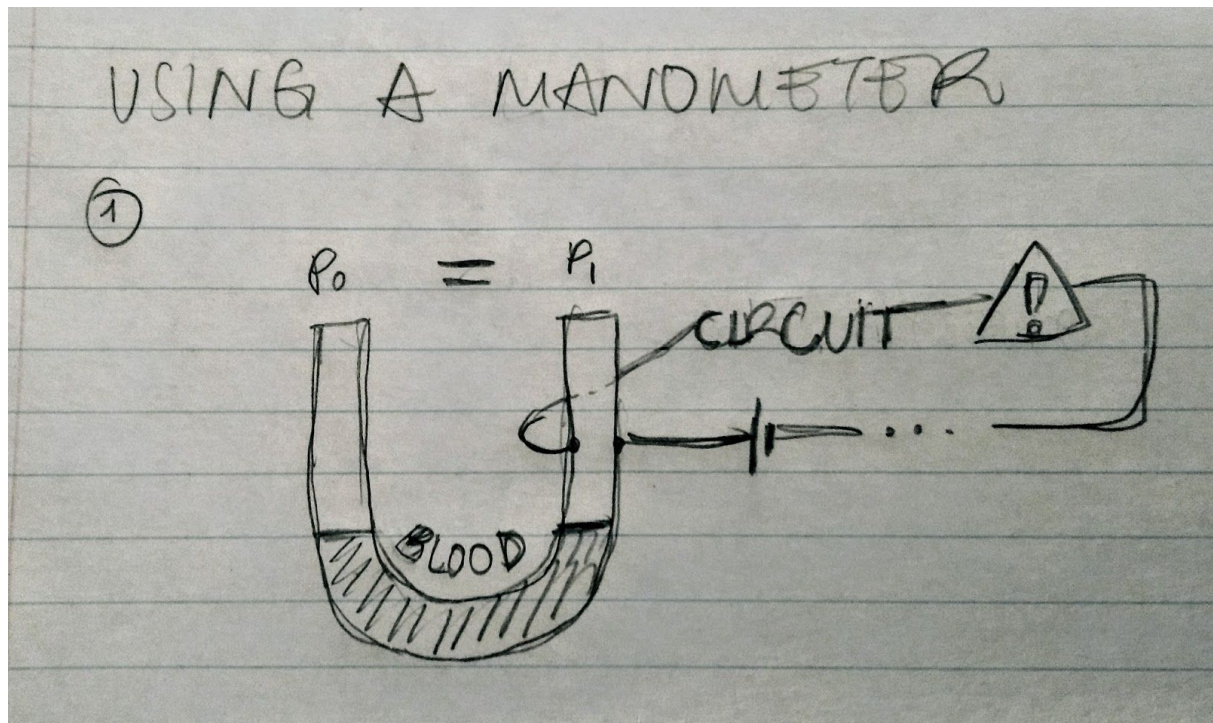 USING A MANOMETER
1
P0 = P1
!
CIRCUIT
...
BLOOD